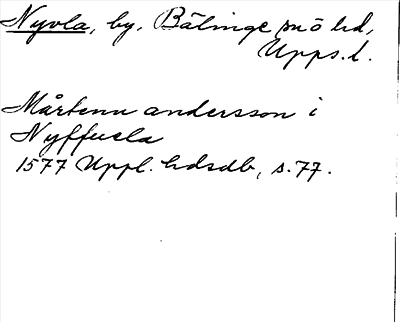 Nyvla, by, Bälinge sn ö hd,
Upps.l.
Mårtenn andersson i
Nyffuela
1577 Uppl. hdsdb, s.77.